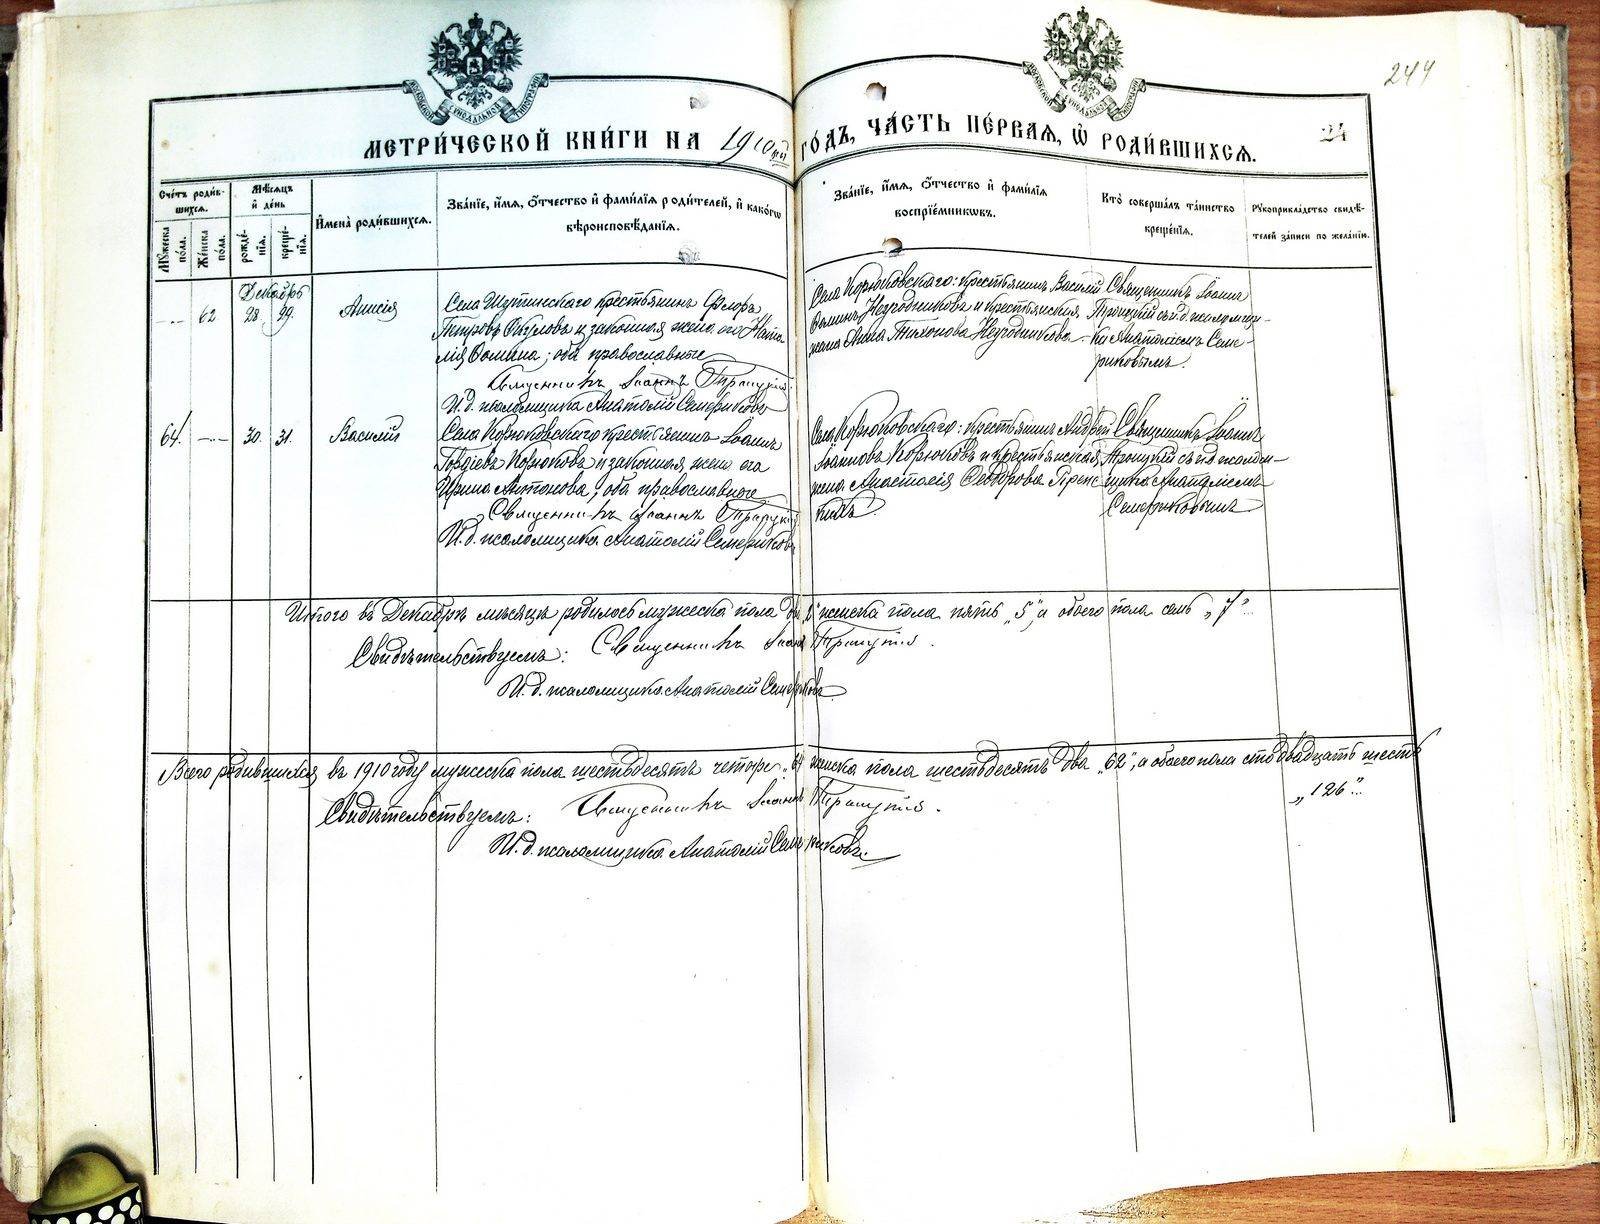 244
МОСКОВСКОЙ СИНОДАЛЬНОЙ ТИПОГРАФІИ
МЕТРИ́ЧЕСКОЙ КНИ́ГИ НА 1910ый ГО́ДЪ, ЧА́СТЬ ПЕ́РВАЯ, Ѡ РОДИ́ВШИХСЯ.
24
Сче́тъ роди́вшихся.
Мѣ́сяцъ и де́нь
Имена̀ роди́вшихся.
Зва́нїе, и́мя, о́тчество и фами́лїя роди́телей, и како́гѡ
вѣроисповѣ́данїя.
Зва́нїе, и́мя, о́тчество и фами́лїя
воспрїе́мниковъ.
Кто̀ соверша́лъ та́инство
креще́нїя.
Рукоприкла́дство свидѣ́-
телей за́писи по жела́нїю.
Му́жеска по́ла.
Же́нска по́ла.
рожде́нїя.
креще́нїя.
Декабрь
62
28.
29.
Анисія
Села Шутинскаго крестьянинъ Флоръ
Петровъ Окуловъ и законная жена его Ната-
лія Ѳомина; оба православные
Священникъ Іоаннъ Троицкій.
И. д. псаломщика Анатолій Семериковъ
Села Корюковскаго: крестьянинъ Василій
Ѳоминъ Неугодниковъ и крестьянская
жена Анна Тихонова Неугодникова
Священникъ Іоаннъ
Троицкій съ и.д. псаломщи-
ка Анатоліемъ Семе-
риковымъ.
64.
30.
31.
Василій
Села Корюковскаго крестьянинъ Іоаннъ
Гордіевъ Корюковъ и законная жена его
Ирина Антонова; оба православные
Священникъ Іоаннъ Троицкій
И. д. псаломщика Анатолій Семериковъ
Села Корюковскаго: крестьянинъ Андрей
Іоанновъ Корюковъ и крестьянская
жена Анастасія Ѳедорова
Священникъ Іоаннъ
Троицкій съ и.д. псалом-
щика Анатоліемъ
Семериковымъ
Итого въ Декабрѣ мѣсяцѣ родилось мужеска пола два женска пола пять „5“, а обоего пола семь „7“.
Свидѣтельствуемъ: Священникъ Іоаннъ Троицкій.
И. д. псаломщика Анатолій Семериковъ
Всего родившихся въ 1910 году мужеска пола шестьдесятъ четыре „64 женска пола шестьдесятъ два „62“, а обоего пола сто двадцать шесть
„126“.
Свидѣтельствуемъ: Священникъ Іоаннъ Троицкій.
И. д. псаломщика Анатолій Семериковъ.